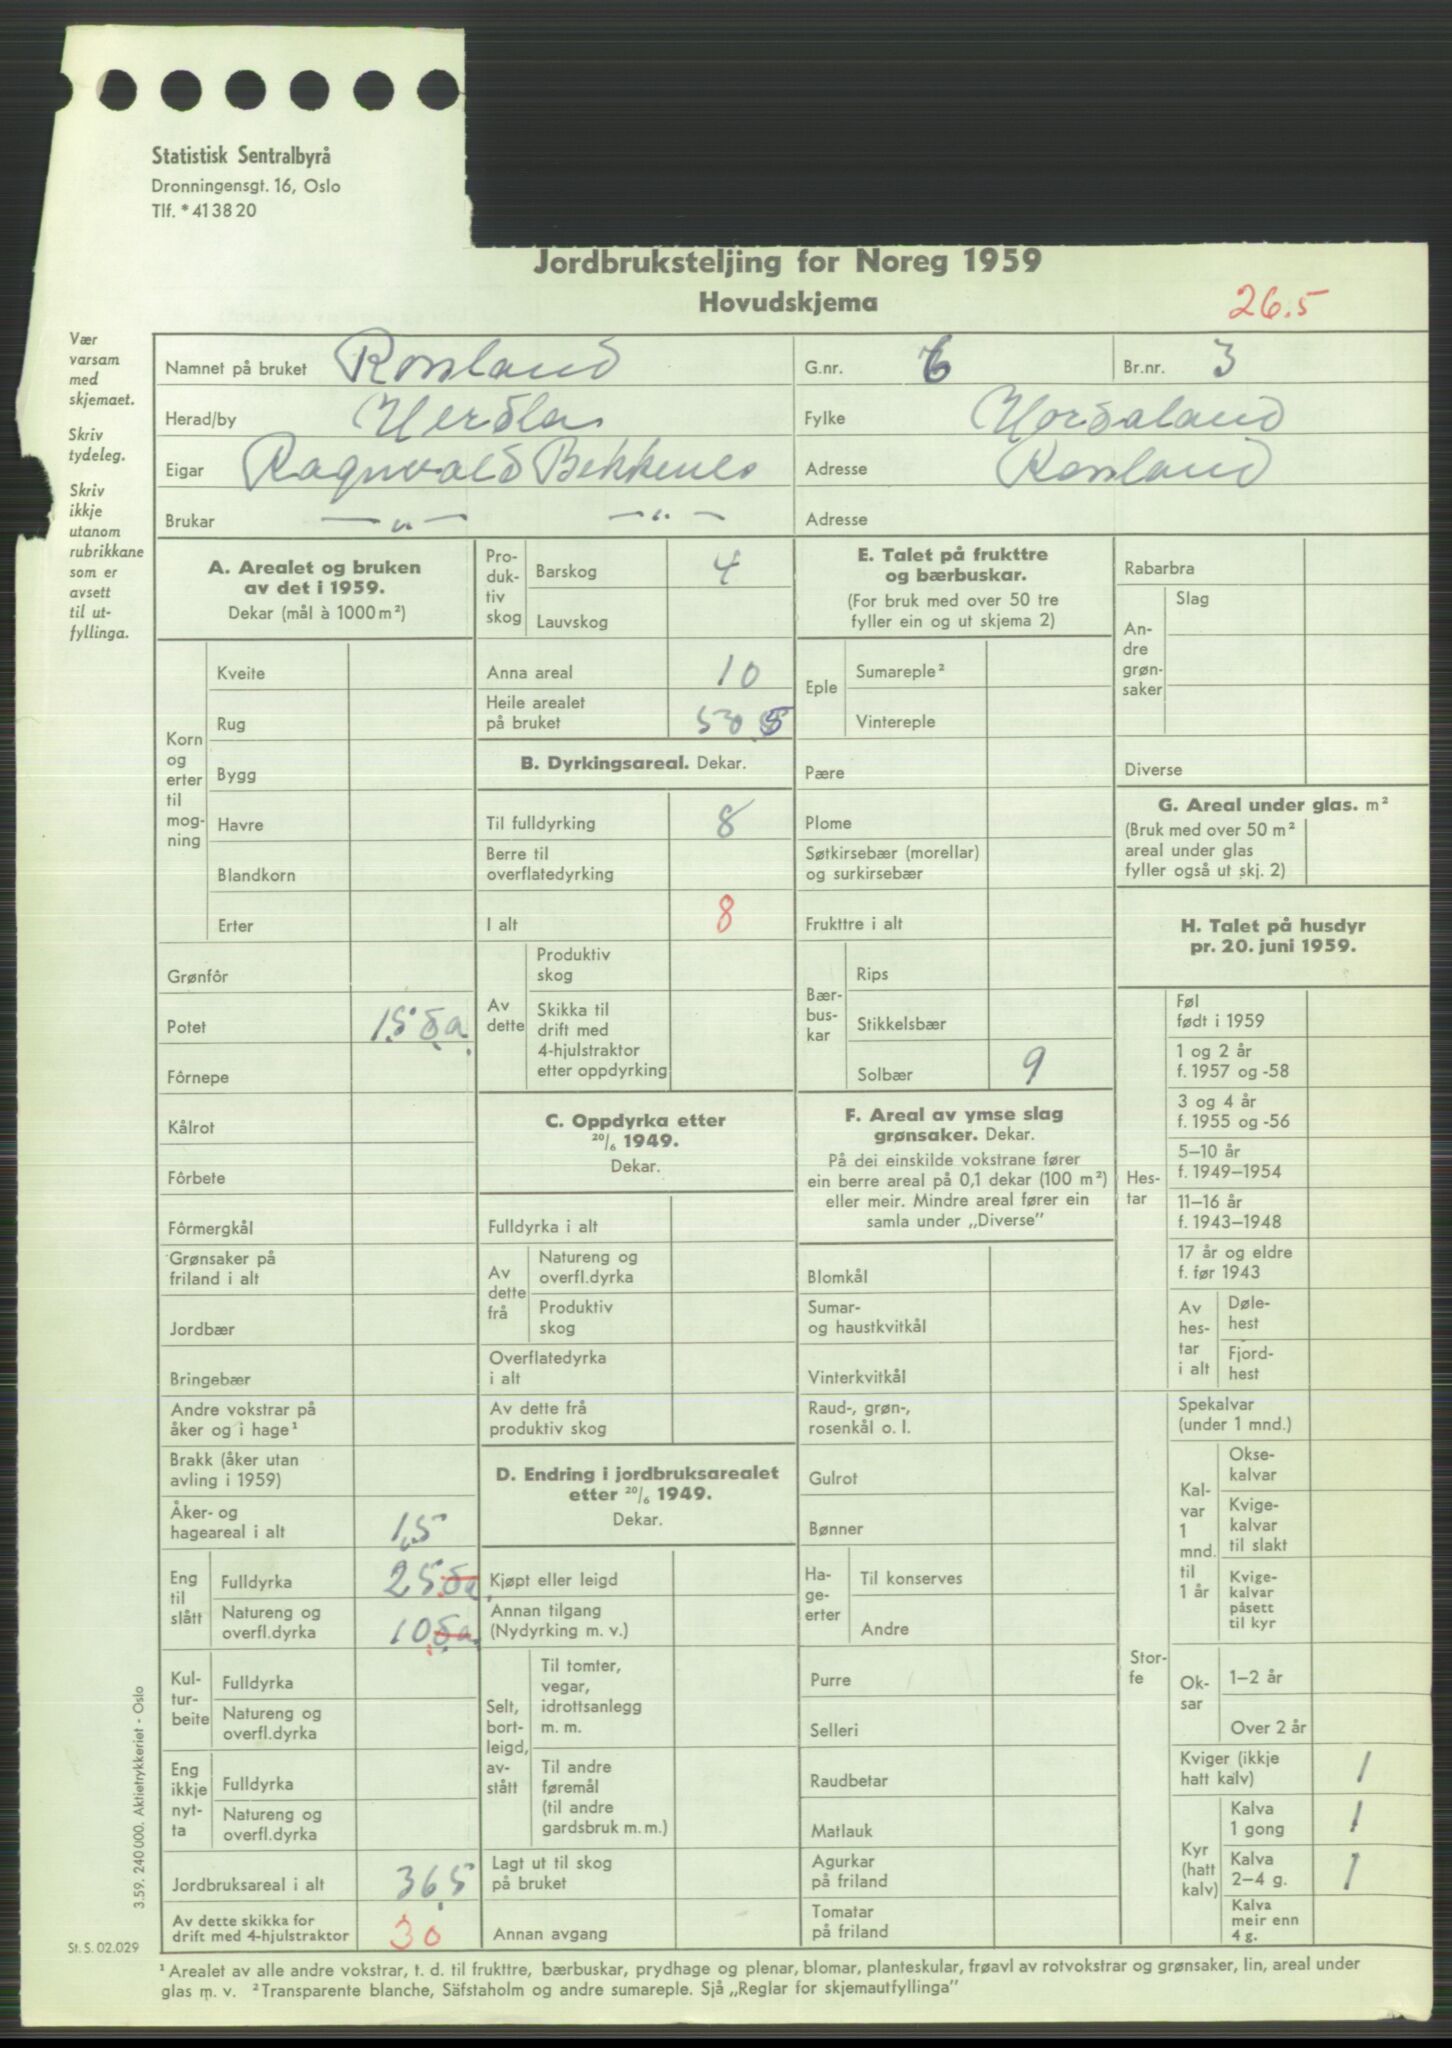 Statistisk Sentralbyrå
Dronningensgt. 16, Oslo
Tlf. * 41 38 20
Jordbruksteljing for Noreg 1959
Hovudskjema
26.5
Vær
varsam
med
skjemaet.
Skriv
tydeleg.
Skriv
ikkje
utanom
rubrikkane
som er
avsett
til ut-
fyllinga.
Namnet på bruket Rossland G.nr. 6 Br.nr. 3
Herad/by Herdla Fylke Hordaland
Eigar Ragnvald Bekkenes Adresse Rossland
Brukar — „ — — „ — Adresse
A. Arealet og bruken
av det i 1959.
Dekar (mål à 1000 m²)
Korn
og
erter
til
mog-
ning
Kveite
Rug
Bygg
Havre
Blandkorn
Erter
Grønfôr
Potet 1,5 da.
Fôrnepe
Kålrot
Fôrbete
Fôrmergkål
Grønsaker på
friland i alt
Jordbær
Bringebær
Andre vokstrar på
åker og i hage¹
Brakk (åker utan
avling i 1959)
Åker- og
hageareal i alt 1,5
Eng
til
slått
Fulldyrka 25 da.
Natureng og
overfl.dyrka 10 da.
Kul-
tur-
beite
Fulldyrka
Natureng og
overfl.dyrka
Eng
ikkje
nyt-
ta
Fulldyrka
Natureng og
overfl.dyrka
Jordbruksareal i alt 36,5
Av dette skikka for
drift med 4-hjulstraktor 30
Pro-
duk-
tiv
skog
Barskog 4
Lauvskog
Anna areal 10
Heile arealet
på bruket 50,5
B. Dyrkingsareal. Dekar.
Til fulldyrking 8
Berre til
overflatedyrking
I alt 8
Av
dette
Produktiv
skog
Skikka til
drift med
4-hjulstraktor
etter oppdyrking
C. Oppdyrka etter
20/6 1949.
Dekar.
Fulldyrka i alt
Av
dette
frå
Natureng og
overfl.dyrka
Produktiv
skog
Overflatedyrka
i alt
Av dette frå
produktiv skog
D. Endring i jordbruksarealet
etter 20/6 1949.
Dekar.
Kjøpt eller leigd
Annan tilgang
(Nydyrking m. v.)
Selt,
bort-
leigd,
av-
stått
Til tomter,
vegar,
idrottsanlegg
m. m.
Til andre
føremål
(til andre
gardsbruk m. m.)
Lagt ut til skog
på bruket
Annan avgang
E. Talet på frukttre
og bærbuskar.
(For bruk med over 50 tre
fyller ein og ut skjema 2)
Eple
Sumareple²
Vintereple
Pære
Plome
Søtkirsebær (morellar)
og surkirsebær
Frukttre i alt
Bær-
bus-
kar
Rips
Stikkelsbær
Solbær 9
F. Areal av ymse slag
grønsaker. Dekar.
På dei einskilde vokstrane fører
ein berre areal på 0,1 dekar (100 m²)
eller meir. Mindre areal fører ein
samla under „Diverse”
Blomkål
Sumar-
og haustkvitkål
Vinterkvitkål
Raud-, grøn-,
rosenkål o. l.
Gulrot
Bønner
Ha-
ge-
erter
Til konserves
Andre
Purre
Selleri
Raudbetar
Matlauk
Agurkar
på friland
Tomatar
på friland
Rabarbra
An-
dre
grøn-
saker
Slag
Diverse
G. Areal under glas. m²
(Bruk med over 50 m²
areal under glas
fyller også ut skj. 2)
H. Talet på husdyr
pr. 20. juni 1959.
Hes-
tar
Føl
født i 1959
1 og 2 år
f. 1957 og -58
3 og 4 år
f. 1955 og -56
5–10 år
f. 1949–1954
11–16 år
f. 1943–1948
17 år og eldre
f. før 1943
Av
hes-
tar
i alt
Døle-
hest
Fjord-
hest
Stor-
fe
Spekalvar
(under 1 mnd.)
Kal-
var
1
mnd.
til
1 år
Okse-
kalvar
Kvige-
kalvar
til slakt
Kvige-
kalvar
påsett
til kyr
Ok-
sar
1–2 år
Over 2 år
Kviger (ikkje
hatt kalv) 1
Kyr
(hatt
kalv)
Kalva
1 gong 1
Kalva
2–4 g. 1
Kalva
meir enn
4 g.
3.59. 240 000. Aktietrykkeriet - Oslo
St. S. 02.029
¹ Arealet av alle andre vokstrar, t. d. til frukttre, bærbuskar, prydhage og plenar, blomar, planteskular, frøavl av rotvokstrar og grønsaker, lin, areal under
glas m. v. ² Transparente blanche, Säfstaholm og andre sumareple. Sjå „Reglar for skjemautfyllinga”